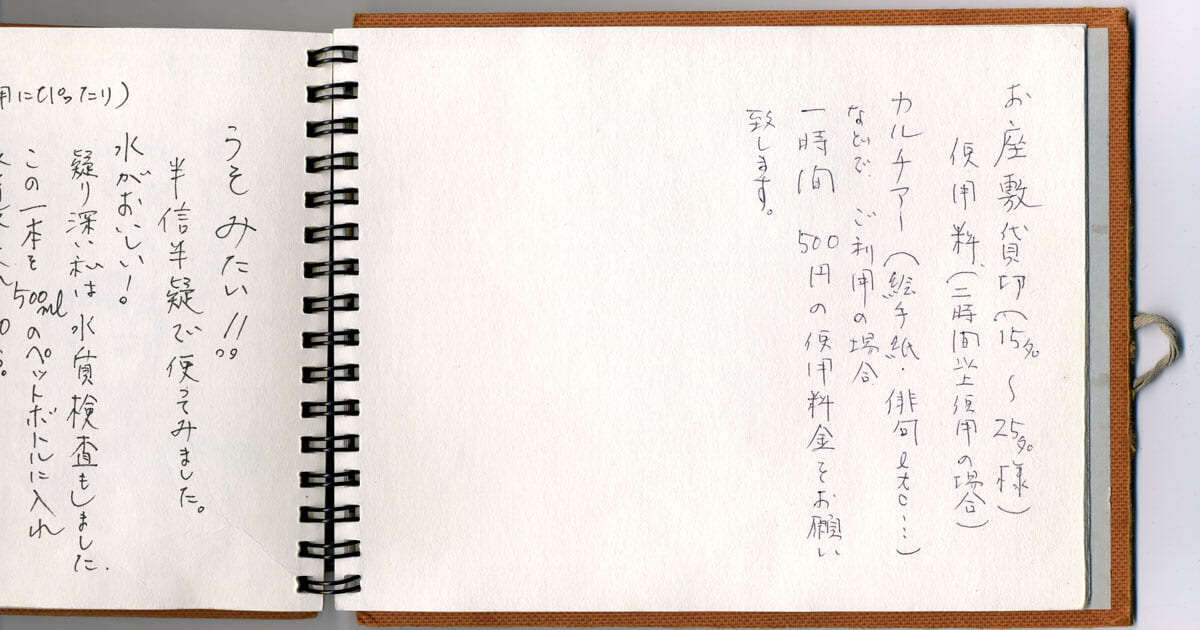 お座敷貸切(15名〜25名様)
使用料(二時間以上使用の場合)
カルチァー(絵手紙・俳句etc…)
などで、ご利用の場合
一時間 500円の使用料金をお願い
致します。
うそみたい!!
半信半疑で使ってみました。
水がおいしい!
疑り深い私は水質検査もしました.
この一本を500mlのペットボトルに入れ
用にぴったり)